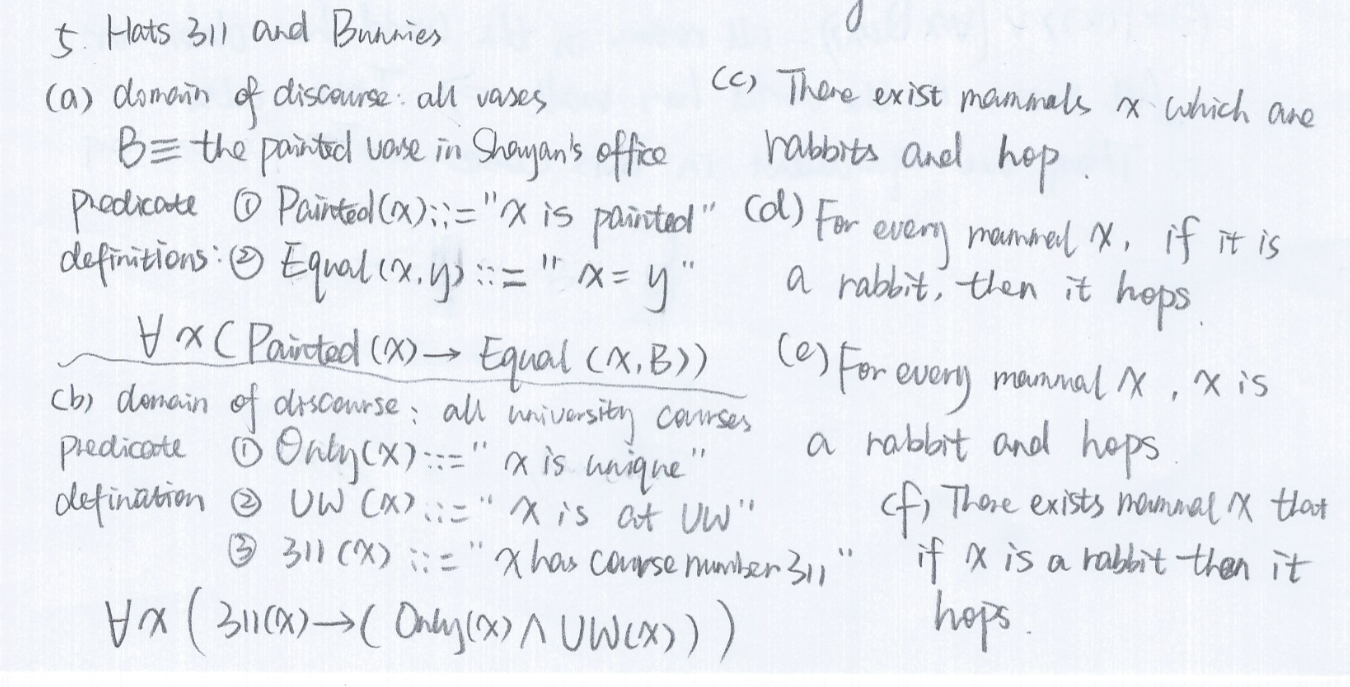 5. Hats 311 and Bunnies
(a) domain of discourse: all vases
B ≡ the painted vase in Shayan's office
predicate ① Painted(x) ::= "x is painted"
definitions: ② Equal(x,y) ::= "x = y"
∀x(Painted(x) → Equal(x,B))
(b) domain of discourse: all university courses
predicate ① Only(x) ::= "x is unique"
defination ② UW(x) ::= "x is at UW"
③ 311(x) ::= "x has course number 311"
∀x(311(x) → (Only(x) ∧ UW(x)))
(c) There exist mammals x which are
rabbits and hop.
(d) For every mammal x, if it is
a rabbit, then it hops.
(e) For every mammal x, x is
a rabbit and hops
(f) There exists mammal x that
if x is a rabbit then it
hops.